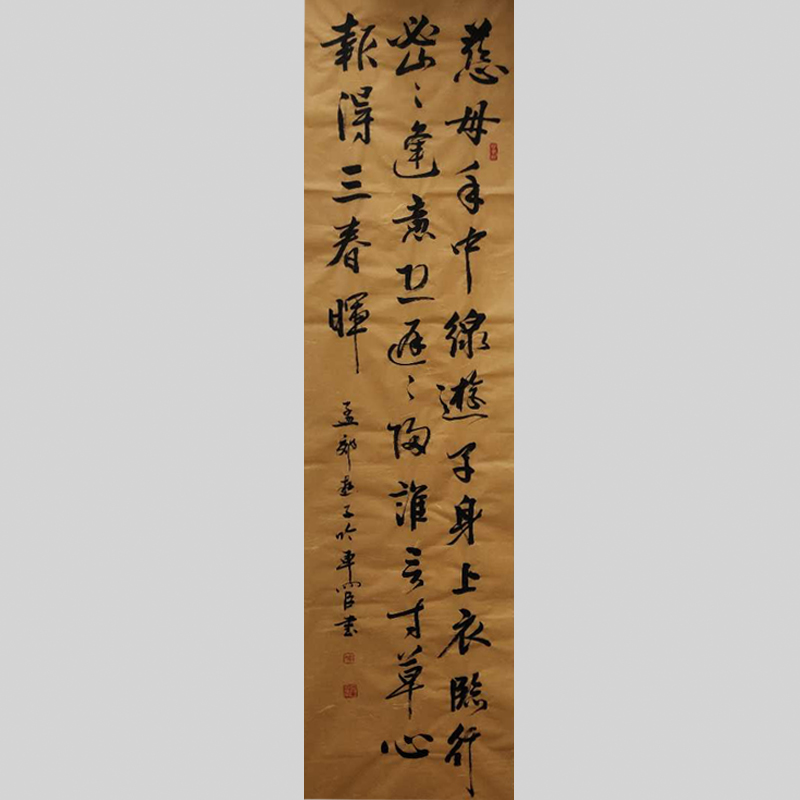 慈母手中線遊子身上衣臨行
密〻逢意恐遲〻歸誰言寸草心
報得三春暉
孟郊遊子吟書